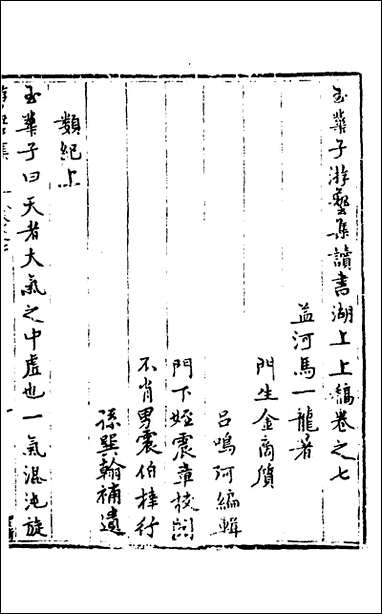 玉華子游藝集讀書湖上上稿卷之七
益河馬一龍著
門生金商質
吕鳴珂編輯
門下姪震章校閱
不肖男震伯梓行
孫巽翰補遺
類紀上
玉華子曰天者大氣之中虛也一氣混沌旋